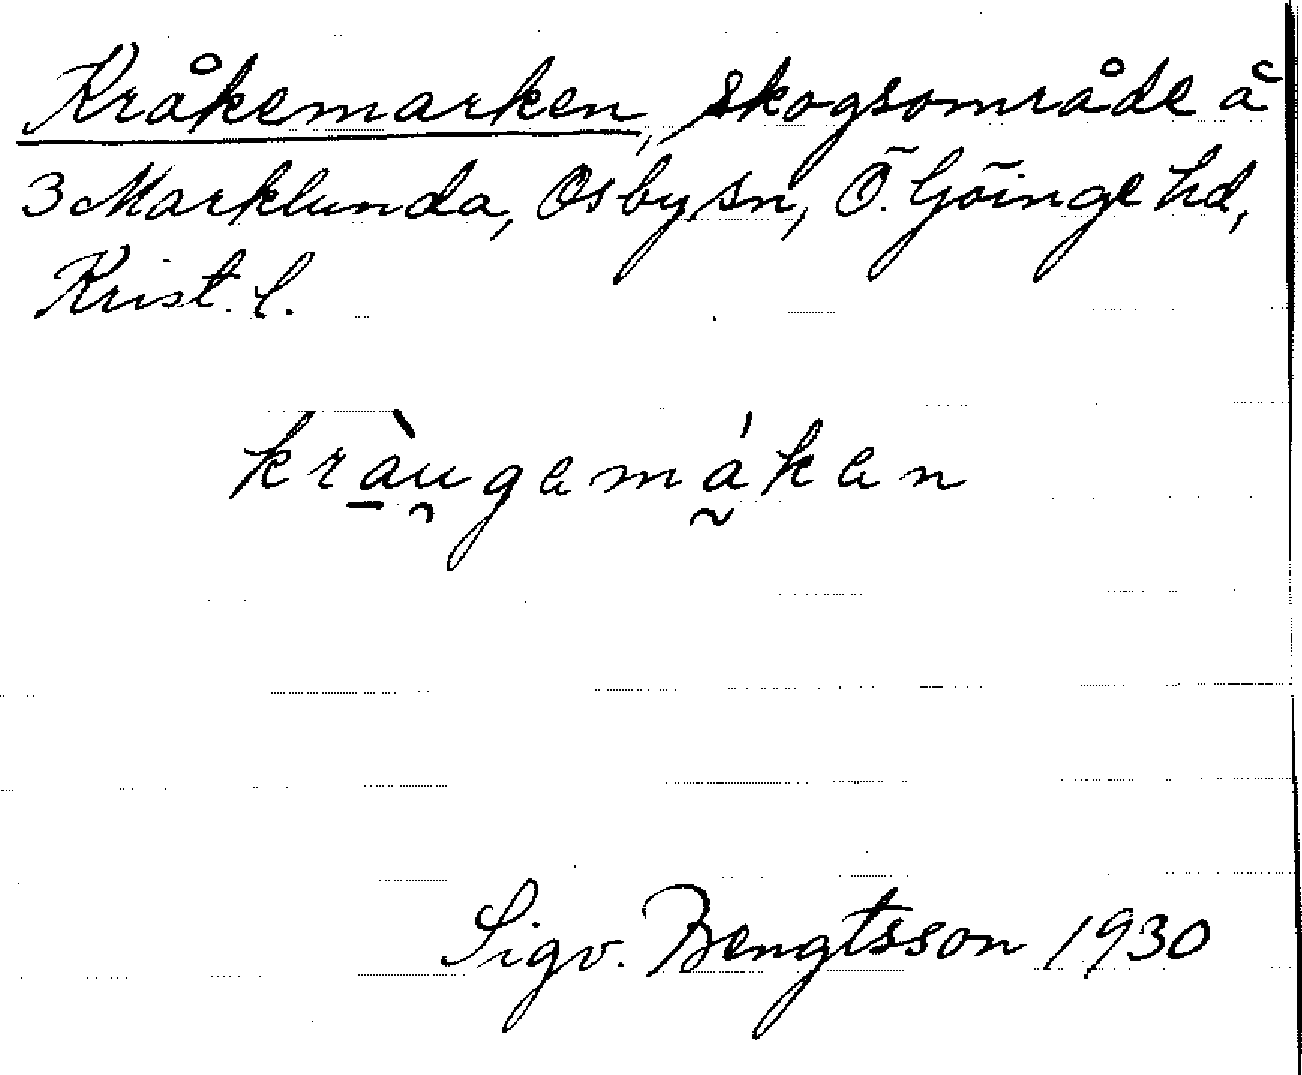 Kråkemarken, skogsområde å
3 Marklunda, Osby sn, Ö. Göinge hd,
Krist. l.
kràu̯gemá̰ken
Sigv. Bengtsson 1930